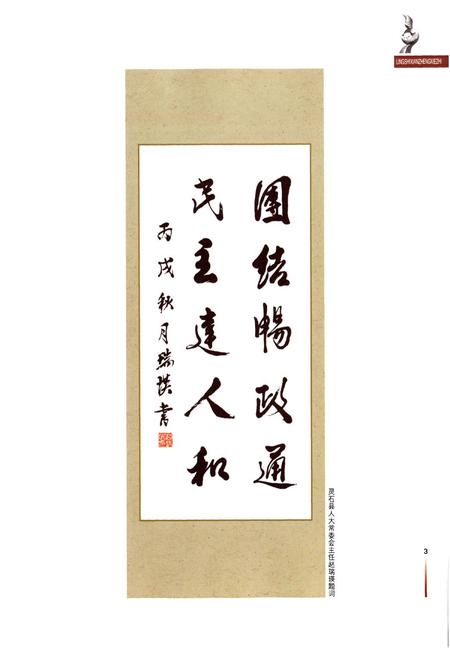 LINGSHIXIANZHENGXIEZHI
團结暢政通
民主達人和
丙戌秋月瑞瑛書
灵石县人大常委会主任赵瑞瑛题词
3